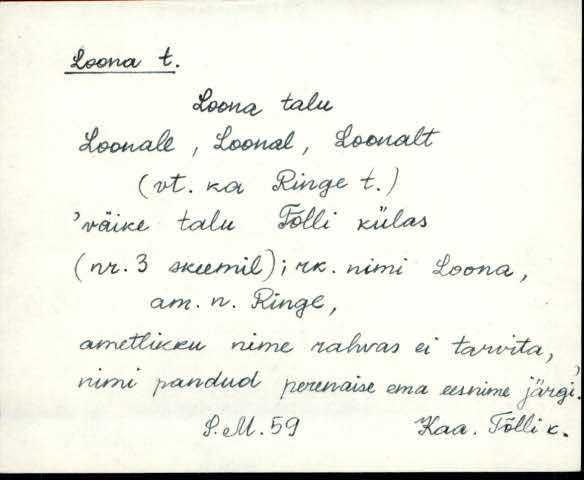 Loona t.
Loona talu
Loonale, Loonal, Loonalt
(vt. ka Ringe t.)
'väike talu Tõlli külas
(nr. 3 skeemil); rk. nimi Loona,
am. n. Ringe,
ametlikku nime rahvas ei tarvita,
nimi pandud perenaise ema eesnime järgi.'
S.M. 59 Kaa. Tõlli k.